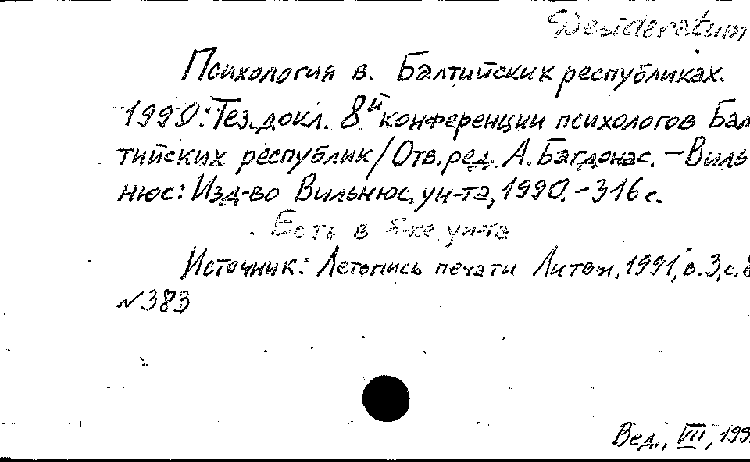 Desideratum
Психология в Балтийских республиках.
1990: Тез. докл. 8й конференции психологов Бал
тийских республик / Отв. ред. А. Багдонас. – Виль
нюс: Изд-во Вильнюс. ун-та, 1990. – 316 с.
Есть в б-ке ун-та
Источник: Летопись печати Литвы, 1991, в. 3, с. 8
№383
Вед., VII, 199